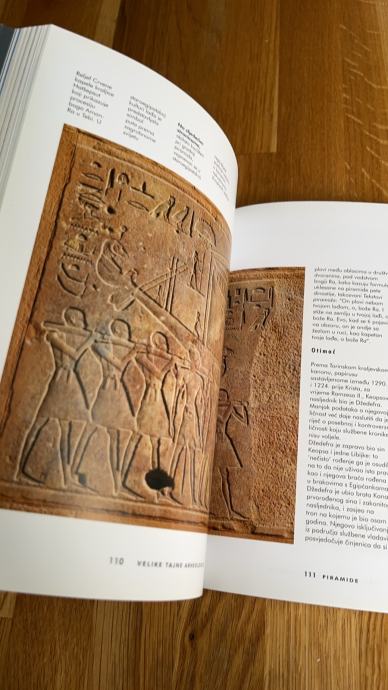 Reljef Crvene
kapele kraljice
Hatšepsut
koji prikazuje
procesiju
boga Amon-
Ra u Tebi. U
staroegipatskoj
kulturi lađa je
predstavljala
simbol
puta prema
zagrobnome
svijetu
110 VELIKE TAJNE
plovi među oblacima u društv
dvoranina, pod vodstvom
boga Ra, kako kazuju formule
uklesane na piramide pete
dinastije, takozvani Tekstovi
piramida: "On plovi nebom
tvojom lađom, o, bože Ra, i
stiže na zemlju u tvojoj lađi, o
bože Ra. Evo, kad se ti pojavi
na obzoru, on je ondje sa
žezlom u ruci, kao kapetan
tvoje lađe, o, bože Ra".
Otimač
Prema Torinskom kraljevskom
kanonu, papirusu
sastavljenome između 1290.
i 1224. prije Krista, za
vrijeme Ramzesa II., Keopsov
nasljednik bio je Džedefra.
Manjak podataka o njegovoj
ličnosti već daje naslutiti da je
riječ o posebnoj i kontroverz
ličnosti koju službene kronike
nisu voljele.
Džedefra je zapravo bio sin
Keopsa i jedne Libijke: to
"nečisto" rođenje ga je osudil
na to da nije uživao ista prav
kao i njegova braća rođena
u brakovima s Egipćankama.
Džedefra je ubio brata Kana
prvorođenog sina i zakonitog
nasljednika, i zasjeo na
tron na kojemu je bio osam
godina. Njegovo isključivanje
iz područja službene vladavi
posvjedočuje činjenica da si
111 PIRAMIDE